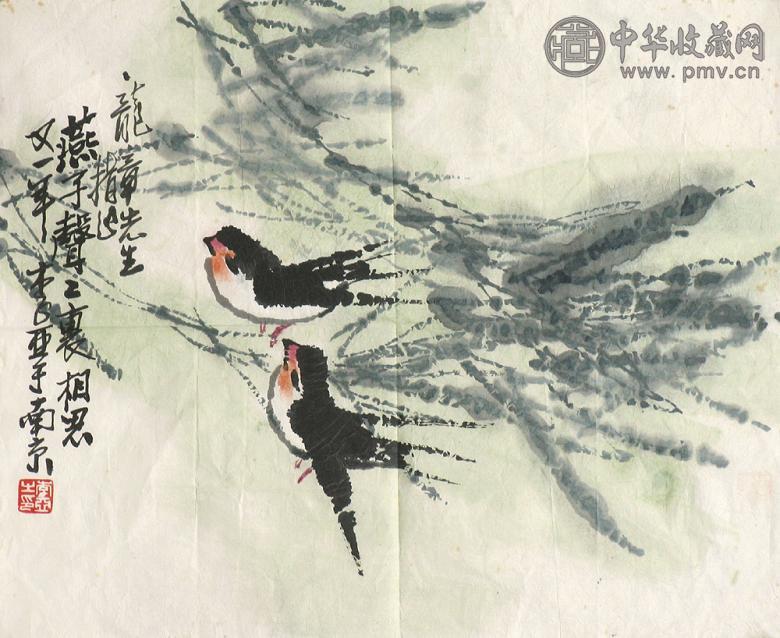 中华收藏网
www.pmv.cn
龍章先生
燕子聲〻裏相思
又一年 李亚于南京